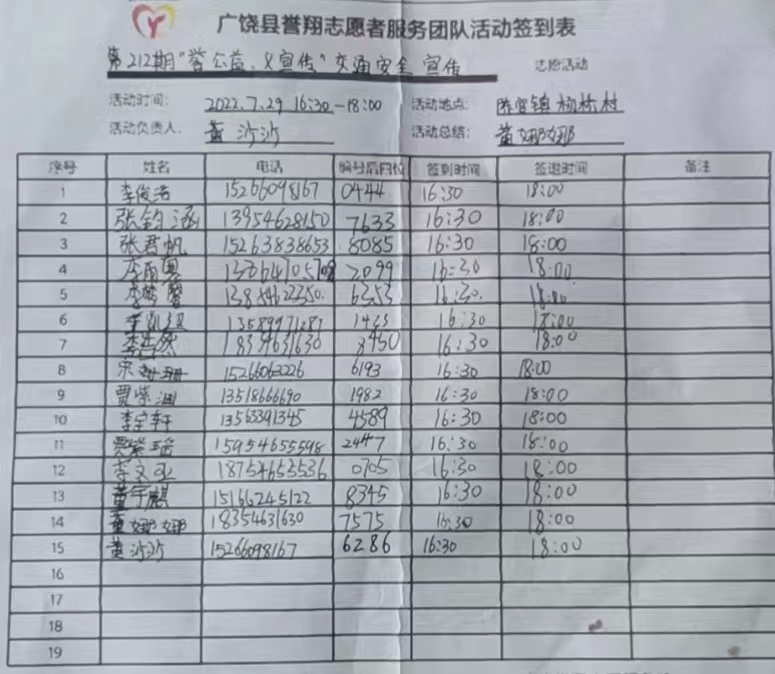 广饶县誉翔志愿者服务团队活动签到表
第212期"誉公益、义宣传"交通安全 宣传 志愿活动
活动时间: 2022.7.29 16:30-18:00 活动地点: 陈官镇 杨桥村
活动负责人: 黄沙沙 活动总结: 董娜娜
序号 姓名 电话 编号后四位 签到时间 签退时间 备注
1 李俊浩 15266098167 0444 16:30 18:00
2 张钧涵 13954628150 7633 16:30 18:00
3 张君帆 15263838653 8085 16:30 18:00
4 2099 16:30 18:00
5 6353 16:30. 18:00
6 13589971287 16:30 18:00
7 18354631630 8450 16:30 18:00
8 宋 15266063226 6193 16:30 18:00
9 贾紫涵 13518666690 1982 16:30 18:00
10 李宇轩 13563391345 4589 16:30 18:00
11 15954655598 2447 16:30 18:00
12 李文亚 18754653536 0705 16:30 18:00
13 董宇麒 15166245122 8345 16:30 18:00
14 董娜娜 18354631630 7575 16:30 18:00
15 黄沙沙 15266098167 6286 16:30 18:00
16
17
18
19